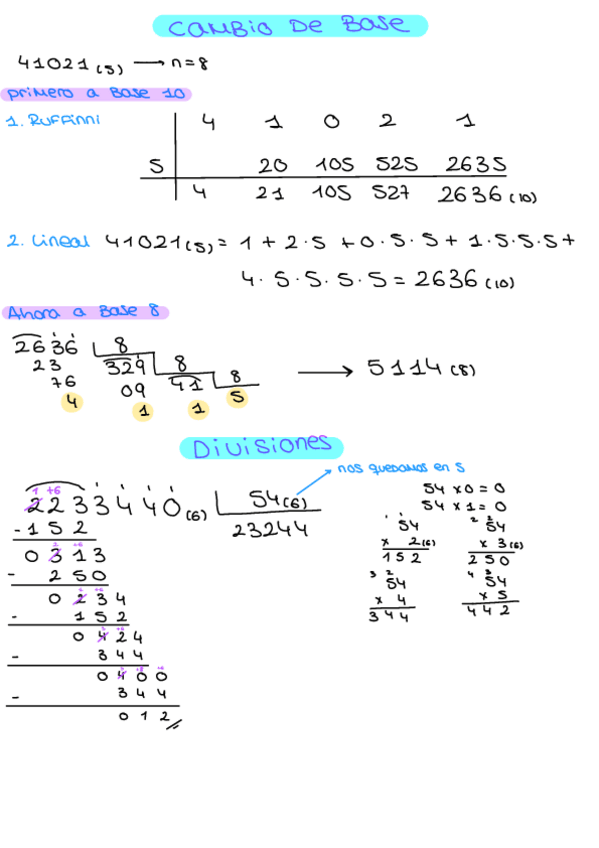 CAMBIO DE BASE
41021(5) → n=8
primero a Base 10
1. Ruffinni
4 1 0 2 1
5 20 105 525 2635
4 21 105 527 2636(10)
2. Lineal 41021(5) = 1 + 2·5 + 0·5·5 + 1·5·5·5 +
4·5·5·5·5 = 2636(10)
Ahora a Base 8
2636 8
23 329 8 → 5114(8)
76 09 41 8
4 1 1 5
Divisiones
nos quedamos en 5
1 +6
2233440(6) 54(6)
23244
54 x 0 = 0
54 x 1 = 0
- 152
0313
- 250
0234
- 152
0424
- 344
0400
- 344
012
54
x 2(6)
152
54
x 3(6)
250
54
x 4
344
54
x 5
442